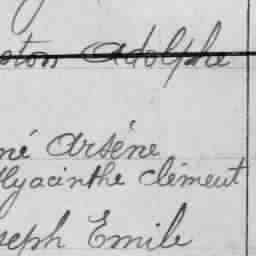 Adolphe
né Arsène
Hyacinthe Clément
seph Emile